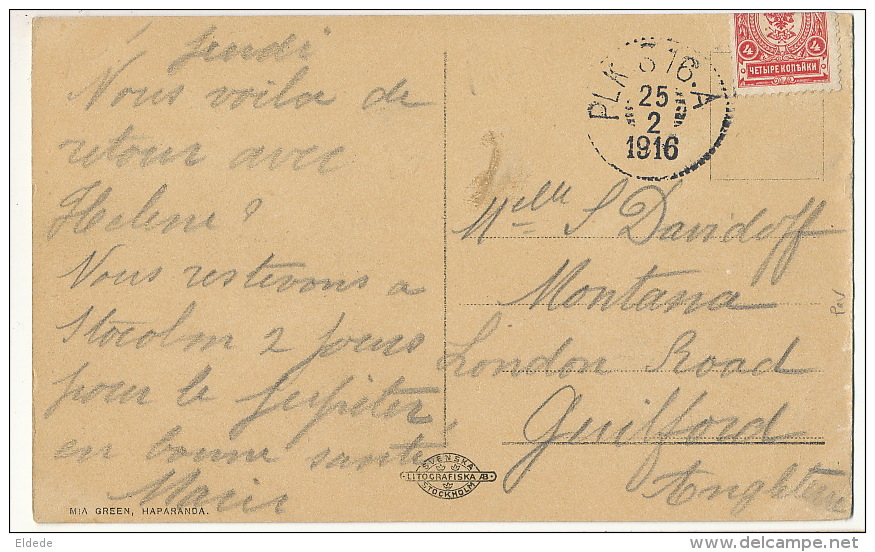 Jeudi
Nous voila de
retour avec
Helene ?
Nous resterons a
Stocolm 2 jours
pour le Jupiter,
en bonne santé
Marie
MIA GREEN, HAPARANDA.
SVENSKA
LITOGRAFISKA AB
STOCKHOLM
4 4
ЧЕТЫРЕ КОПѢЙКИ
25
2
1916
Melle S Davidoff
Montana
London Road
Guilford
Angleterre
Eldede
delcampe.net